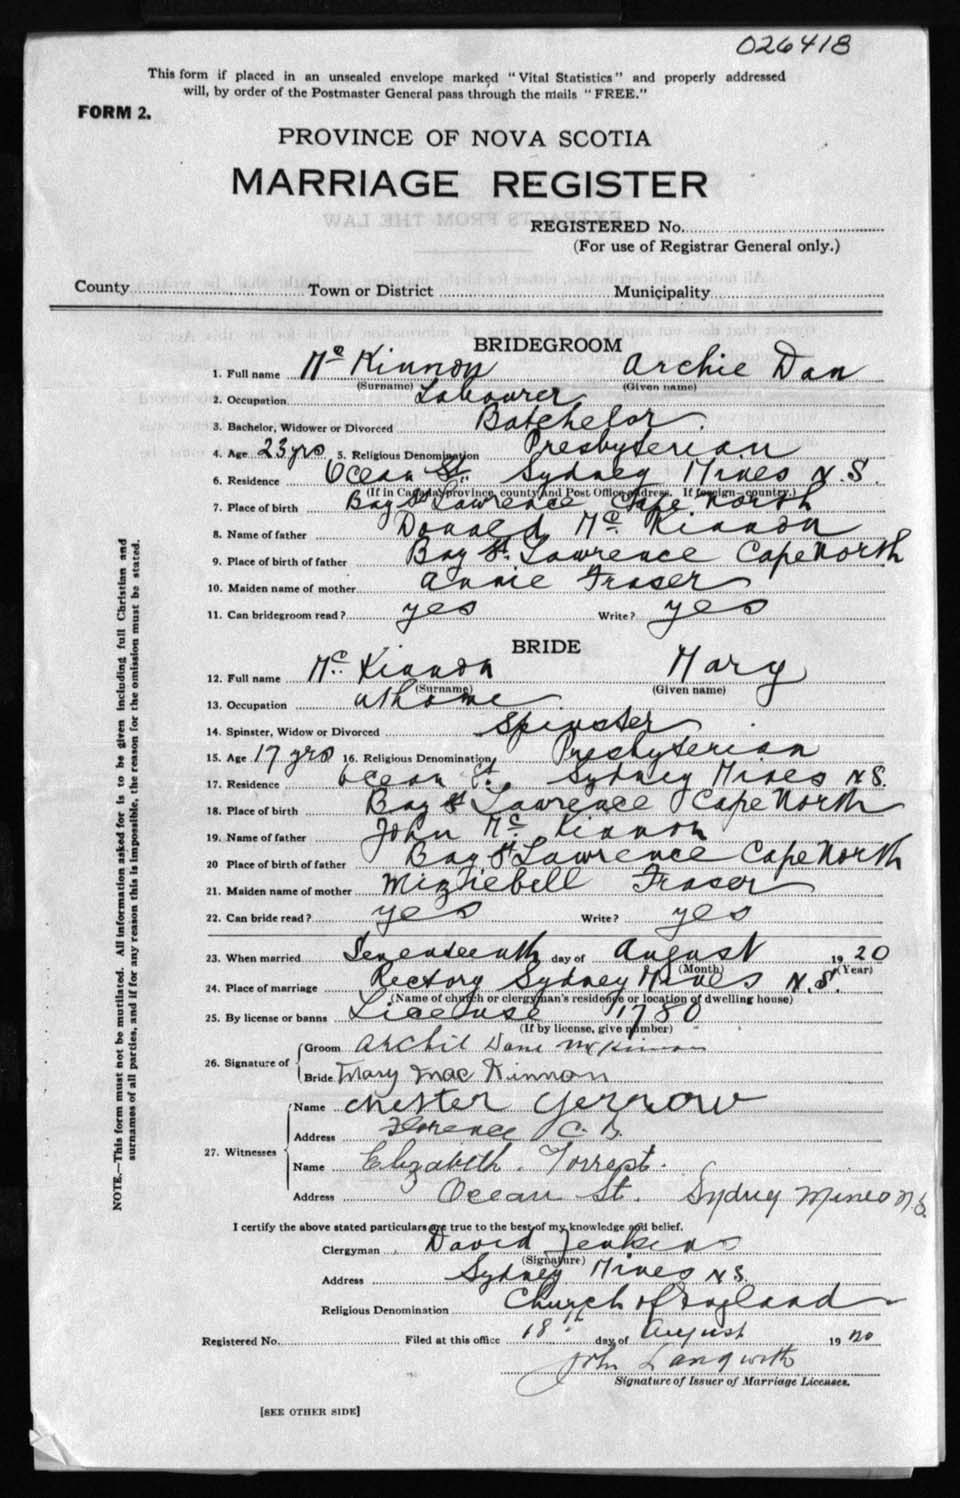 026418
This form if placed in an unsealed envelope marked "Vital Statistics" and properly addressed
will, by order of the Postmaster General pass through the mails "FREE."
FORM 2.
PROVINCE OF NOVA SCOTIA
MARRIAGE REGISTER
REGISTERED No.
(For use of Registrar General only.)
County Town or District Municipality
BRIDEGROOM
1. Full name Mc Kinnon Archie Dan
(Surname) (Given name)
2. Occupation Labourer
3. Bachelor, Widower or Divorced Batchelor.
4. Age 23 yrs 5. Religious Denomination Presbyterian
6. Residence Ocean St. Sydney Mines N.S.
(If in Canada, province, county and Post Office address. If foreign—country.)
7. Place of birth Bay St Lawrence Cape North
8. Name of father Donald Mc Kinnon
9. Place of birth of father Bay St. Lawrence Cape North
10. Maiden name of mother Annie Fraser
11. Can bridegroom read? yes Write? yes
BRIDE
12. Full name Mc Kinnon Mary
(Surname) (Given name)
13. Occupation at home
14. Spinster, Widow or Divorced Spinster
15. Age 17 yrs 16. Religious Denomination Presbyterian
17. Residence Ocean St. Sydney Mines N.S.
18. Place of birth Bay St Lawrence Cape North
19. Name of father John Mc Kinnon
20 Place of birth of father Bay St Lawrence Cape North
21. Maiden name of mother Fraser
22. Can bride read? yes Write? yes
23. When married Seventeenth day of August 1920
(Month) (Year)
24. Place of marriage Rectory Sydney Mines N.S.
(Name of church or clergyman's residence or location of dwelling house)
25. By license or banns License 1780
(If by license, give number)
26. Signature of
Groom Archie Dane McKinnon
Bride Mary MacKinnon
27. Witnesses
Name Chester Gerrow
Address Florence C.B.
Name Elizabeth Forrest.
Address Ocean St. Sydney Mines N.S.
I certify the above stated particulars are true to the best of my knowledge and belief.
Clergyman David Jenkins
(Signature)
Address Sydney Mines N.S.
Religious Denomination Church of England
Registered No. Filed at this office 18th day of August 1920
John Langwith
Signature of Issuer of Marriage Licenses.
[SEE OTHER SIDE]
NOTE.—This form must not be mutilated. All information asked for is to be given including full Christian and
surnames of all parties, and if for any reason this is impossible, the reason for the omission must be stated.